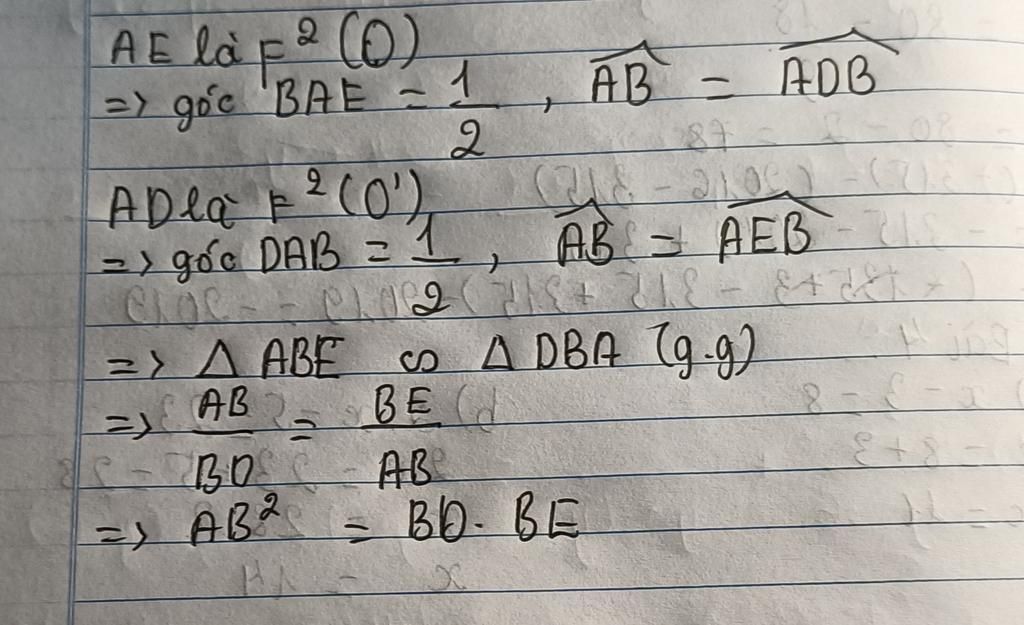 AE là F² (O)
=> góc BAE = 1/2 , \widehat{AB} = \widehat{ADB}
AD là F² (O')
=> góc DAB = 1/2 , \widehat{AB} = \widehat{AEB}
=> Δ ABE ∽ Δ DBA (g.g)
=> AB/BD = BE/AB
=> AB² = BD. BE